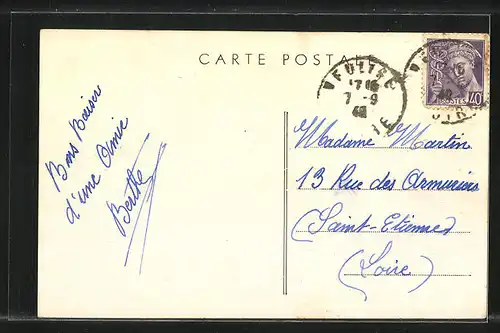 CARTE POSTALE
17 15
7 - 9
POSTES
40
Bons Baisers
d'une Amie
Berthe
Madame Martin
13 Rue des Armuriers
Saint-Etienne
(Loire)